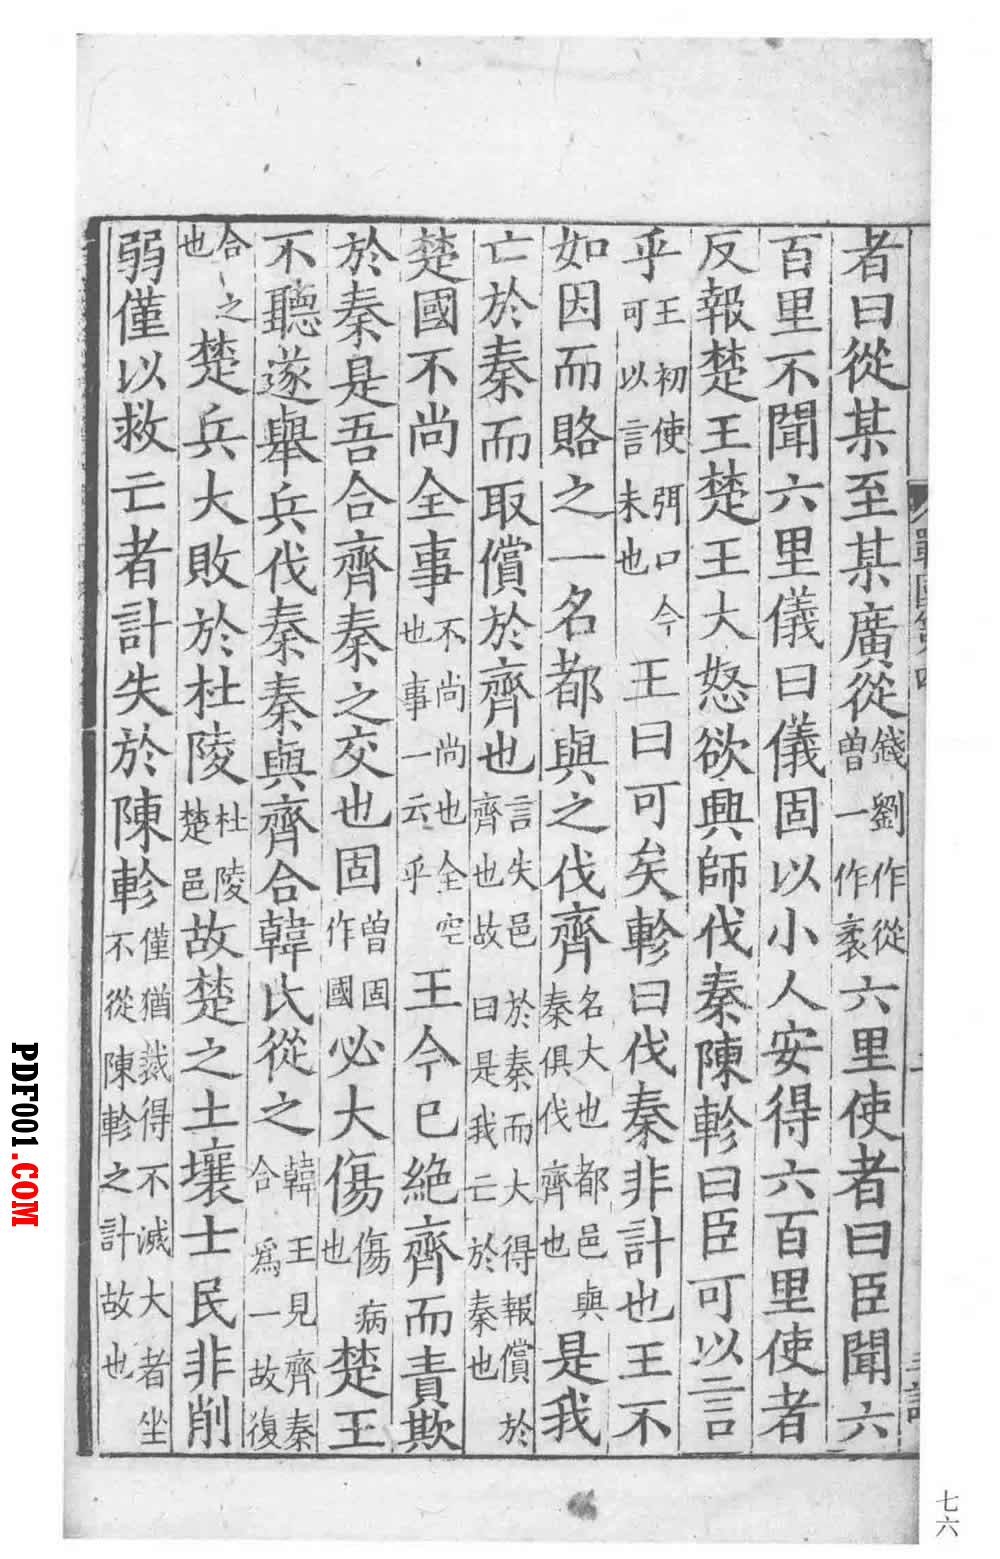 者曰從某至某廣從錢劉作從曾一作袤六里使者曰臣聞六
百里不聞六里儀曰儀固以小人安得六百里使者
反報楚王楚王大怒欲興師伐秦陳軫曰臣可以言
乎王初使弭口今可以言未也王曰可矣軫曰伐秦非計也王不
如因而賂之一名都與之伐齊名大也都邑與秦俱伐齊也是我
亡於秦而取償於齊也言失邑於秦而大得報償於齊也故曰是我亡於秦也
楚國不尚全事不尚尚也全空也事一云乎王今已絕齊而責欺
於秦是吾合齊秦之交也固曾固作國必大傷傷病也楚王
不聽遂舉兵伐秦秦與齊合韓氏從之韓王見齊秦合爲一故復
合之也楚兵大敗於杜陵杜陵楚邑故楚之土壤士民非削
弱僅以救亡者計失於陳軫僅猶裁得不滅大者坐不從陳軫之計故也
七六
PDF001.COM